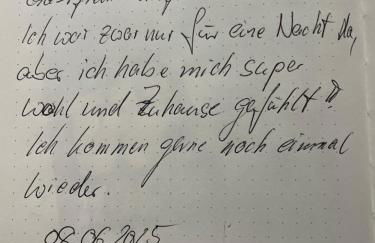 Ich war zwar nur für eine Nacht da,
aber ich habe mich super
wohl und Zuhause gefühlt!!
Ich kommen gerne noch einmal
wieder.
08.06.2025